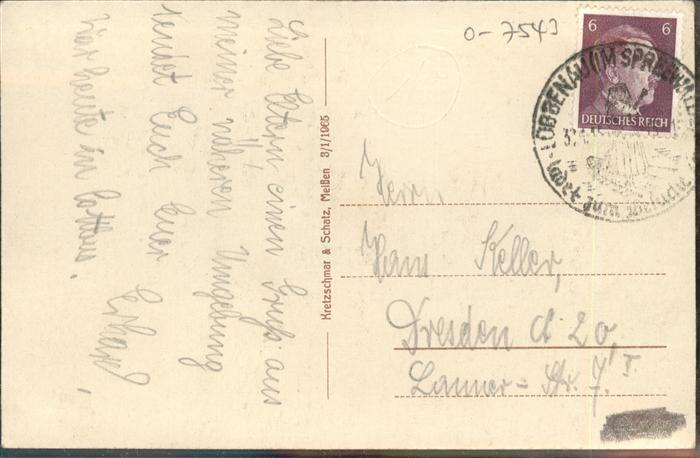 Liebe Eltern einen Gruß aus
meiner näheren Umgebung
sendet Euch Euer Erhard.
War heute in Cottbus.
Kretzschmar & Schatz, Meißen 3/1/1965
0-7543
6 6
DEUTSCHES REICH
LÜBBENAU (IM SPREEWALD
ladet zum
Herrn
Hans Keller,
Dresden A 20,
Str. 7. I.